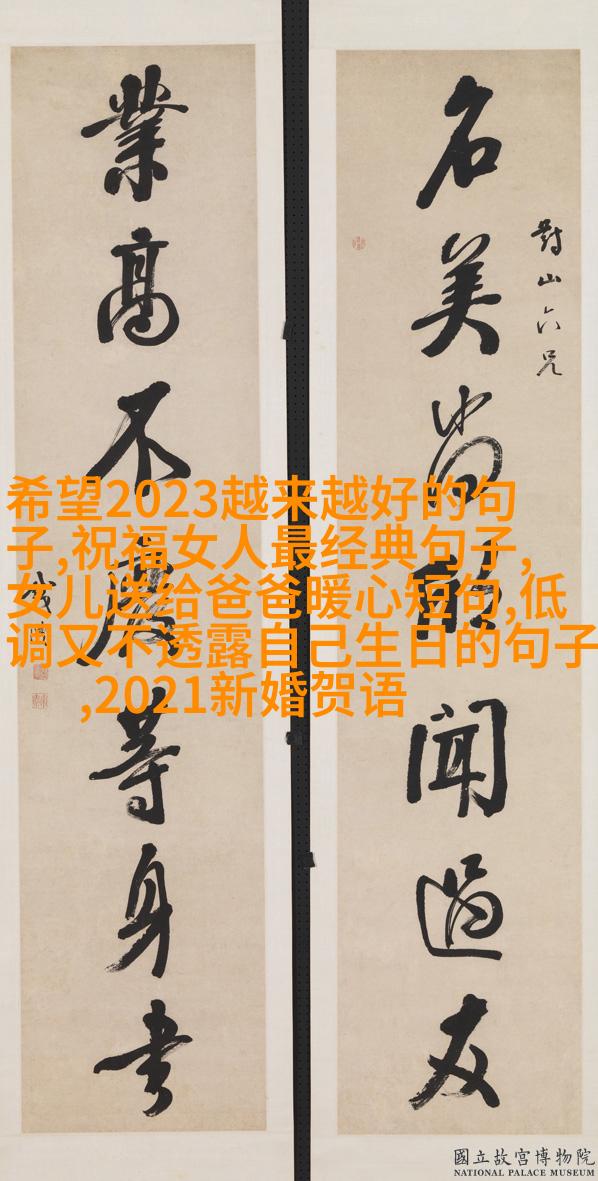 名美尚欣聞過友
對山六兄
業高不廢等身書
希望2023越来越好的句
子,祝福女人最经典句子,
女儿送给爸爸暖心短句,低
调又不透露自己生日的句子
,2021新婚贺语
國立故宮博物院
NATIONAL PALACE MUSEUM